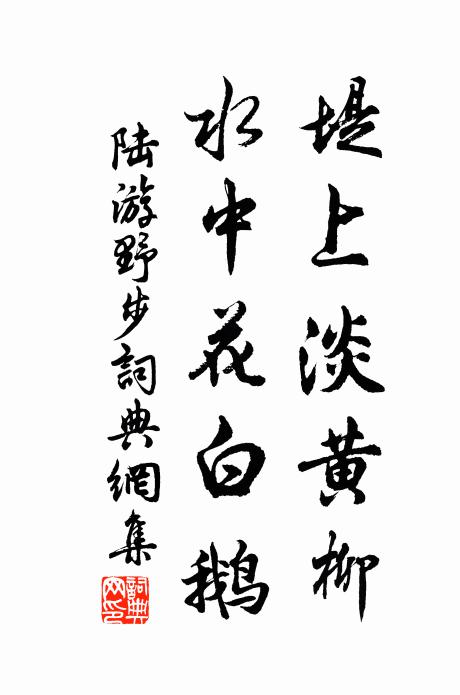 堤上淡黄柳
水中花白鵝
陸游野步詞典網集
詞典網印